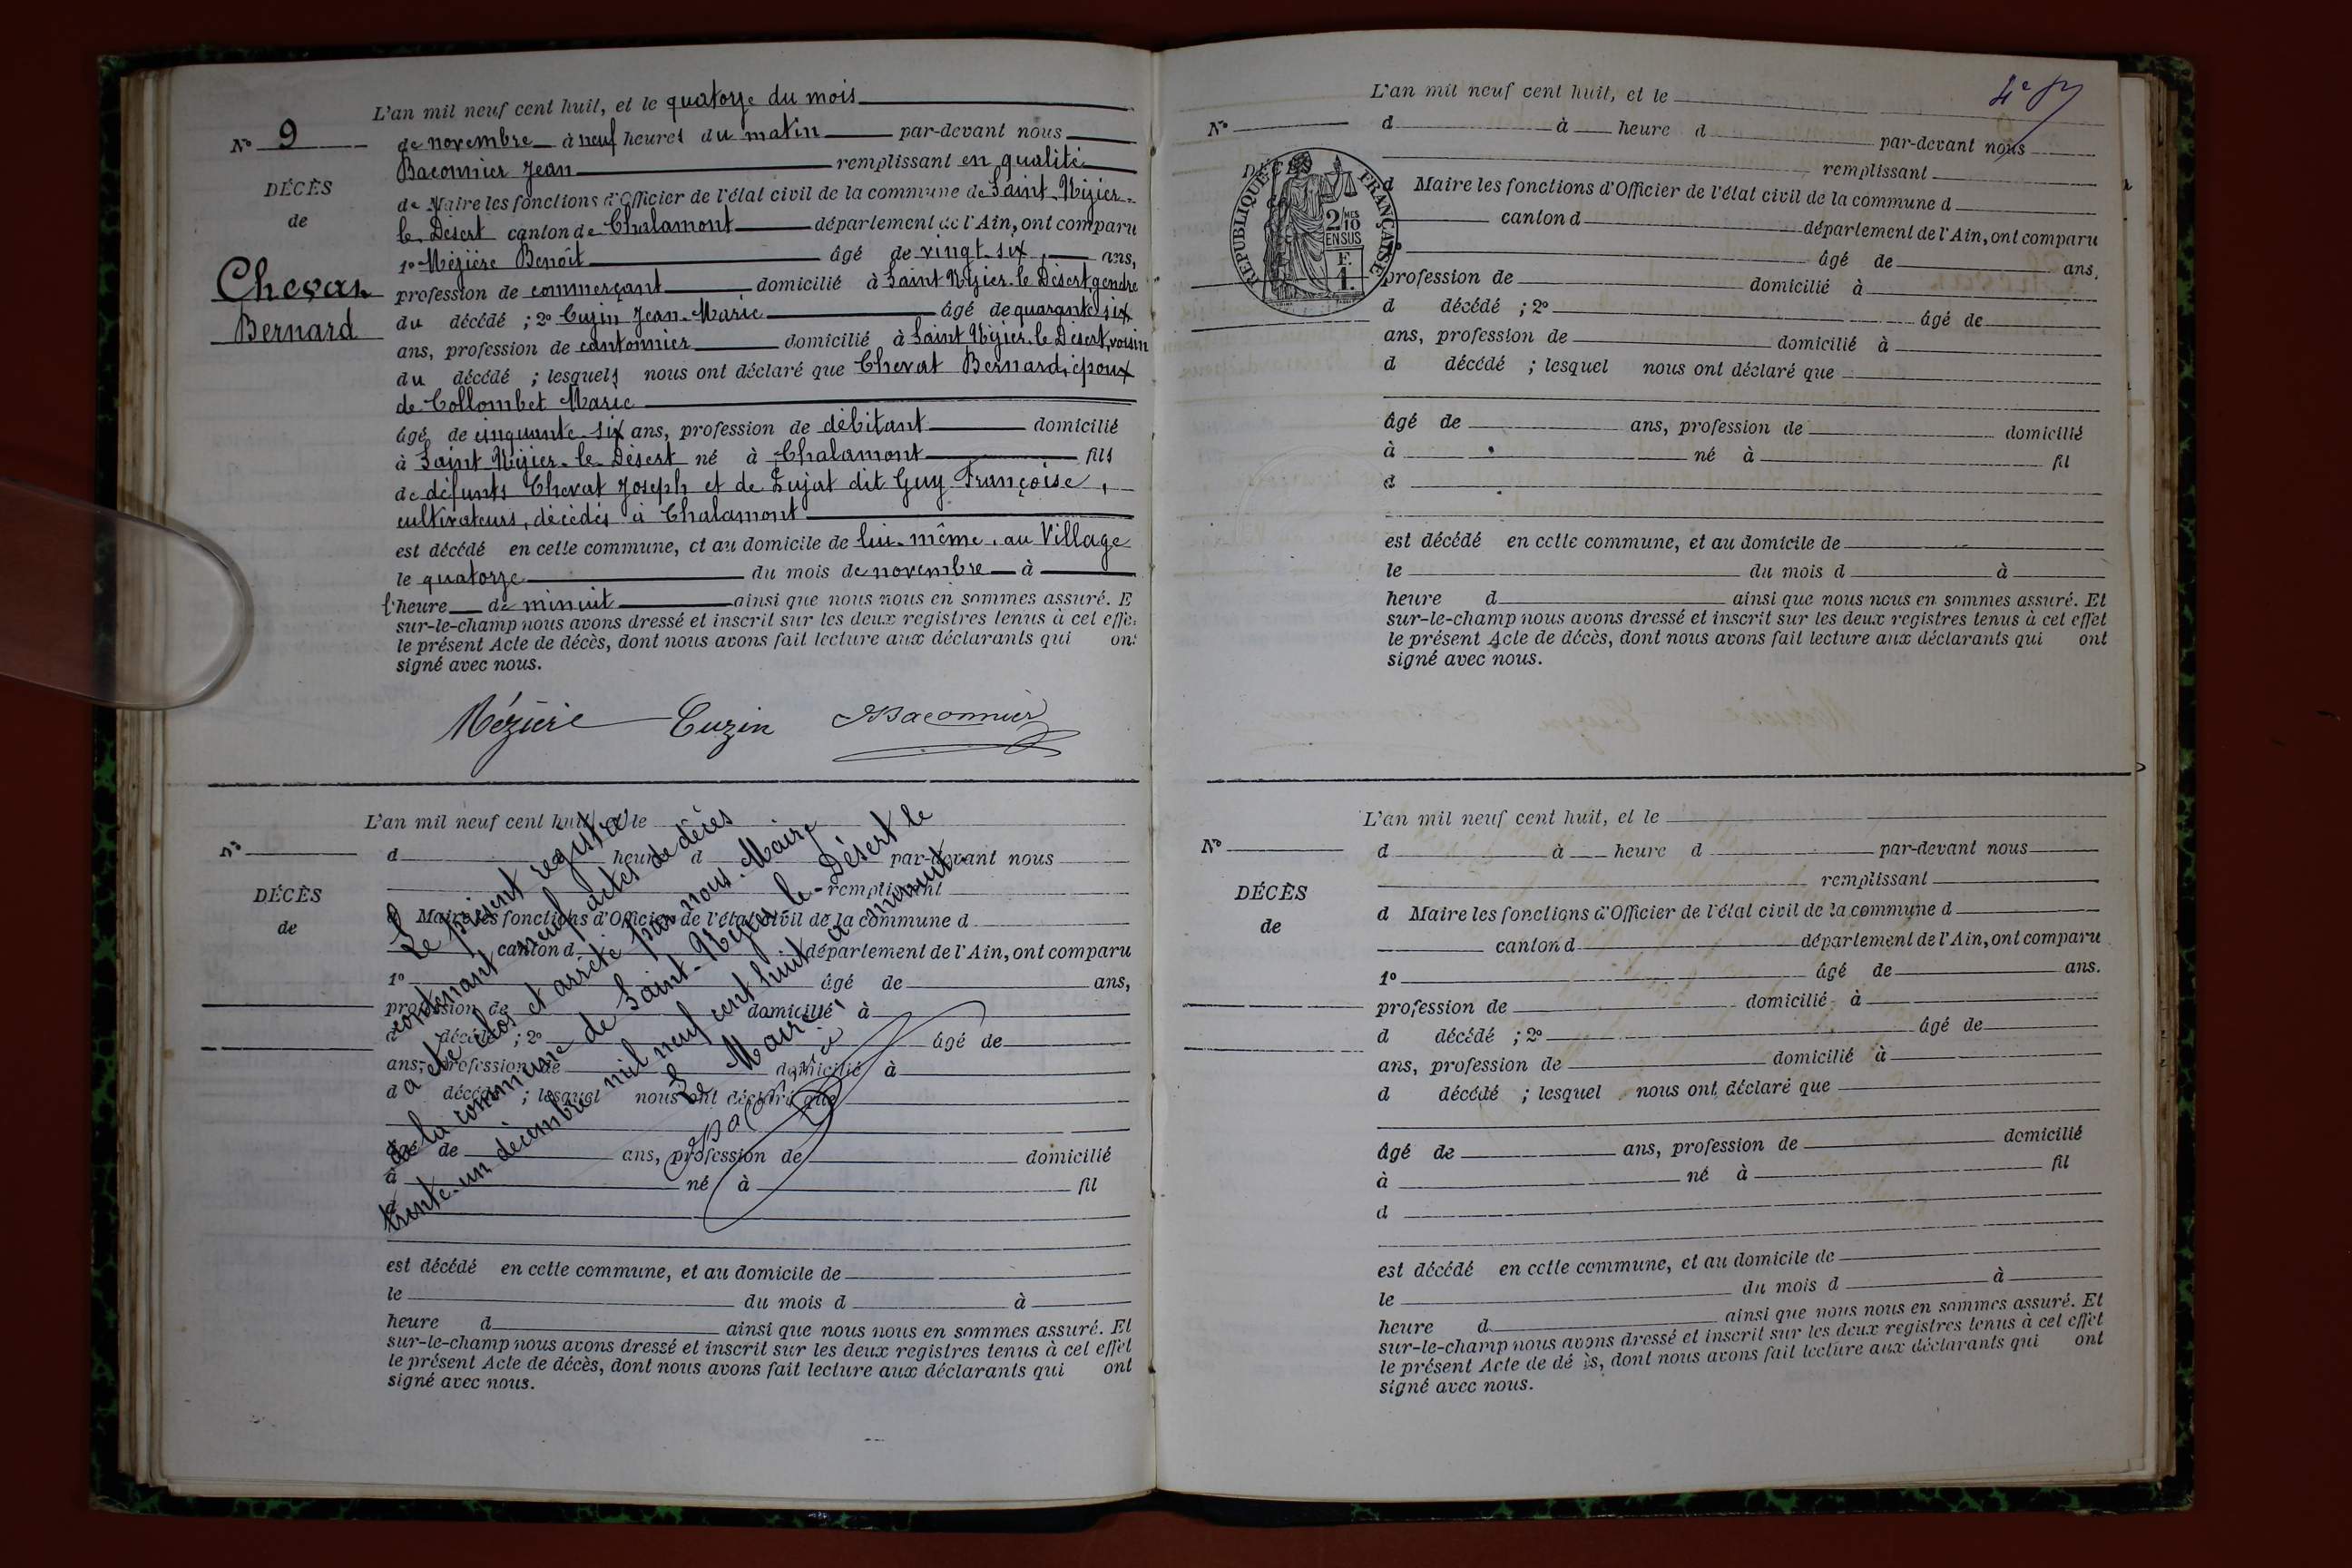 L'an mil neuf cent huit, et le quatorze du mois
N° 9
de novembre à neuf heures du matin par-devant nous
Baconnier Jean remplissant en qualité
DÉCÈS
de Maire les fonctions d'Officier de l'état civil de la commune de Saint-Nizier-
de
le Désert canton de Chalamont département de l'Ain, ont comparu
1° Mézière Benoît âgé de vingt-six ans,
Chevat
profession de commerçant domicilié à Saint Nizier-le Désert gendre
Bernard
du décédé ; 2° Cuzin Jean-Marie âgé de quarante six
ans, profession de cantonnier domicilié à Saint Nizier-le Désert, voisin
du décédé ; lesquels nous ont déclaré que Chevat Bernard, époux
de Collombet Marie
âgé de cinquante-six ans, profession de débitant domicilié
à Saint Nizier-le-Désert né à Chalamont fils
de défunts Chevat Joseph et de Lujat dit Guy Françoise,
cultivateurs, décédés à Chalamont
est décédé en cette commune, et au domicile de lui-même, au Village
le quatorze du mois de novembre à
l'heure de minuit ainsi que nous nous en sommes assuré. E
sur-le-champ nous avons dressé et inscrit sur les deux registres tenus à cet effe
le présent Acte de décès, dont nous avons fait lecture aux déclarants qui ont
signé avec nous.
Mézière Cuzin JBaconnier
L'an mil neuf cent huit, et le
N°
d heure d par-devant nous
remplissant
DÉCÈS
d Maire les fonctions d'Officier de l'état civil de la commune d
de
canton d département de l'Ain, ont comparu
1° âgé de ans,
profession de domicilié à
d décédé ; 2° âgé de
ans, profession de domicilié à
d décédé ; lesquel nous ont déclaré que
âgé de ans, profession de domicilié
à né à fil
d
est décédé en cette commune, et au domicile de
le du mois d à
heure d ainsi que nous nous en sommes assuré. Et
sur-le-champ nous avons dressé et inscrit sur les deux registres tenus à cet effet
le présent Acte de décès, dont nous avons fait lecture aux déclarants qui ont
signé avec nous.
Le présent registre
contenant neuf actes de décès
a été clos et arrêté par nous, Maire
de la commune de Saint-Nizier-le-Désert le
trente-un décembre mil neuf cent huit à minuit.
Le Maire,
JBaconnier
4e
L'an mil neuf cent huit, et le
N°
d à heure d par-devant nous
remplissant
DÉCÈS
RÉPUBLIQUE FRANÇAISE
2/10 MES
EN SUS
F.
1.
d Maire les fonctions d'Officier de l'état civil de la commune d
canton d département de l'Ain, ont comparu
âgé de ans.
profession de domicilié à
d décédé ; 2° âgé de
ans, profession de domicilié à
d décédé ; lesquel nous ont déclaré que
âgé de ans, profession de domicilié
à né à fil
d
est décédé en cette commune, et au domicile de
le du mois d à
heure d ainsi que nous nous en sommes assuré. Et
sur-le-champ nous avons dressé et inscrit sur les deux registres tenus à cet effet
le présent Acte de décès, dont nous avons fait lecture aux déclarants qui ont
signé avec nous.
L'an mil neuf cent huit, et le
N°
d à heure d par-devant nous
remplissant
DÉCÈS
d Maire les fonctions d'Officier de l'état civil de la commune d
de
canton d département de l'Ain, ont comparu
1° âgé de ans.
profession de domicilié à
d décédé ; 2° âgé de
ans, profession de domicilié à
d décédé ; lesquel nous ont déclaré que
âgé de ans, profession de domicilié
à né à fil
d
est décédé en cette commune, et au domicile de
le du mois d à
heure d ainsi que nous nous en sommes assuré. Et
sur-le-champ nous avons dressé et inscrit sur les deux registres tenus à cet effet
le présent Acte de dé ès, dont nous avons fait lecture aux déclarants qui ont
signé avec nous.